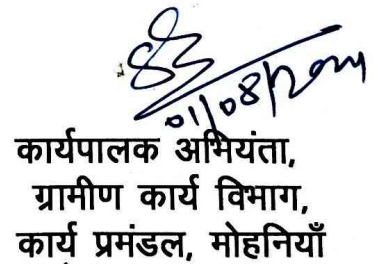 01/08/2024
कार्यपालक अभियंता,
ग्रामीण कार्य विभाग,
कार्य प्रमंडल, मोहनियाँ